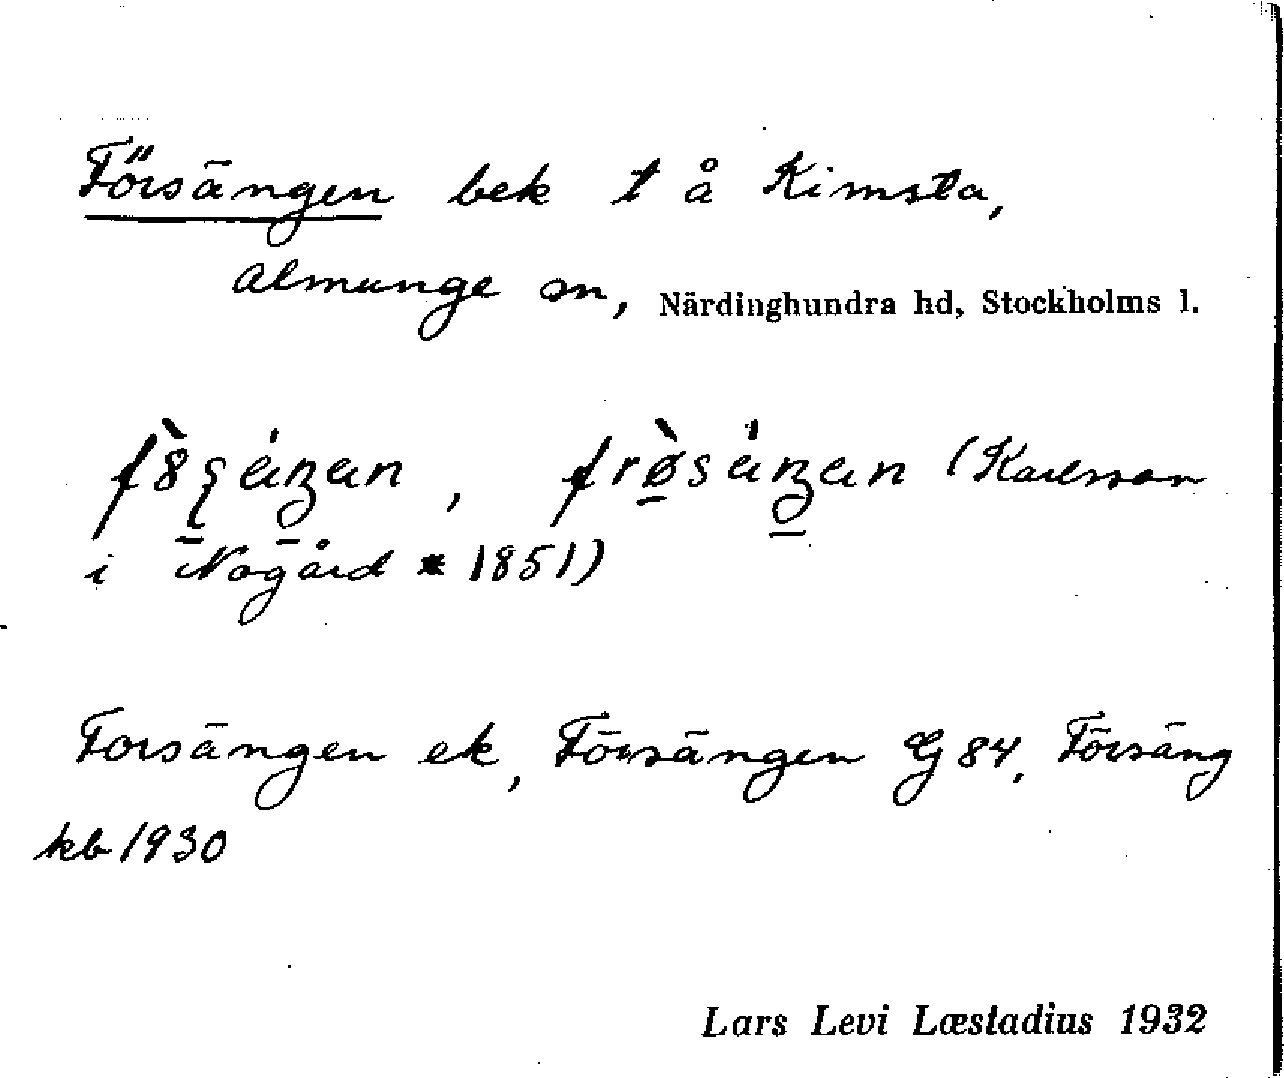 Försängen bek t å Kimsta,
Almunge sn, Närdinghundra hd, Stockholms l.
(Karlsson
i Nogård * 1851)
Forsängen ek, Försängen G 84, Försäng
kb 1930
Lars Levi Læstadius 1932